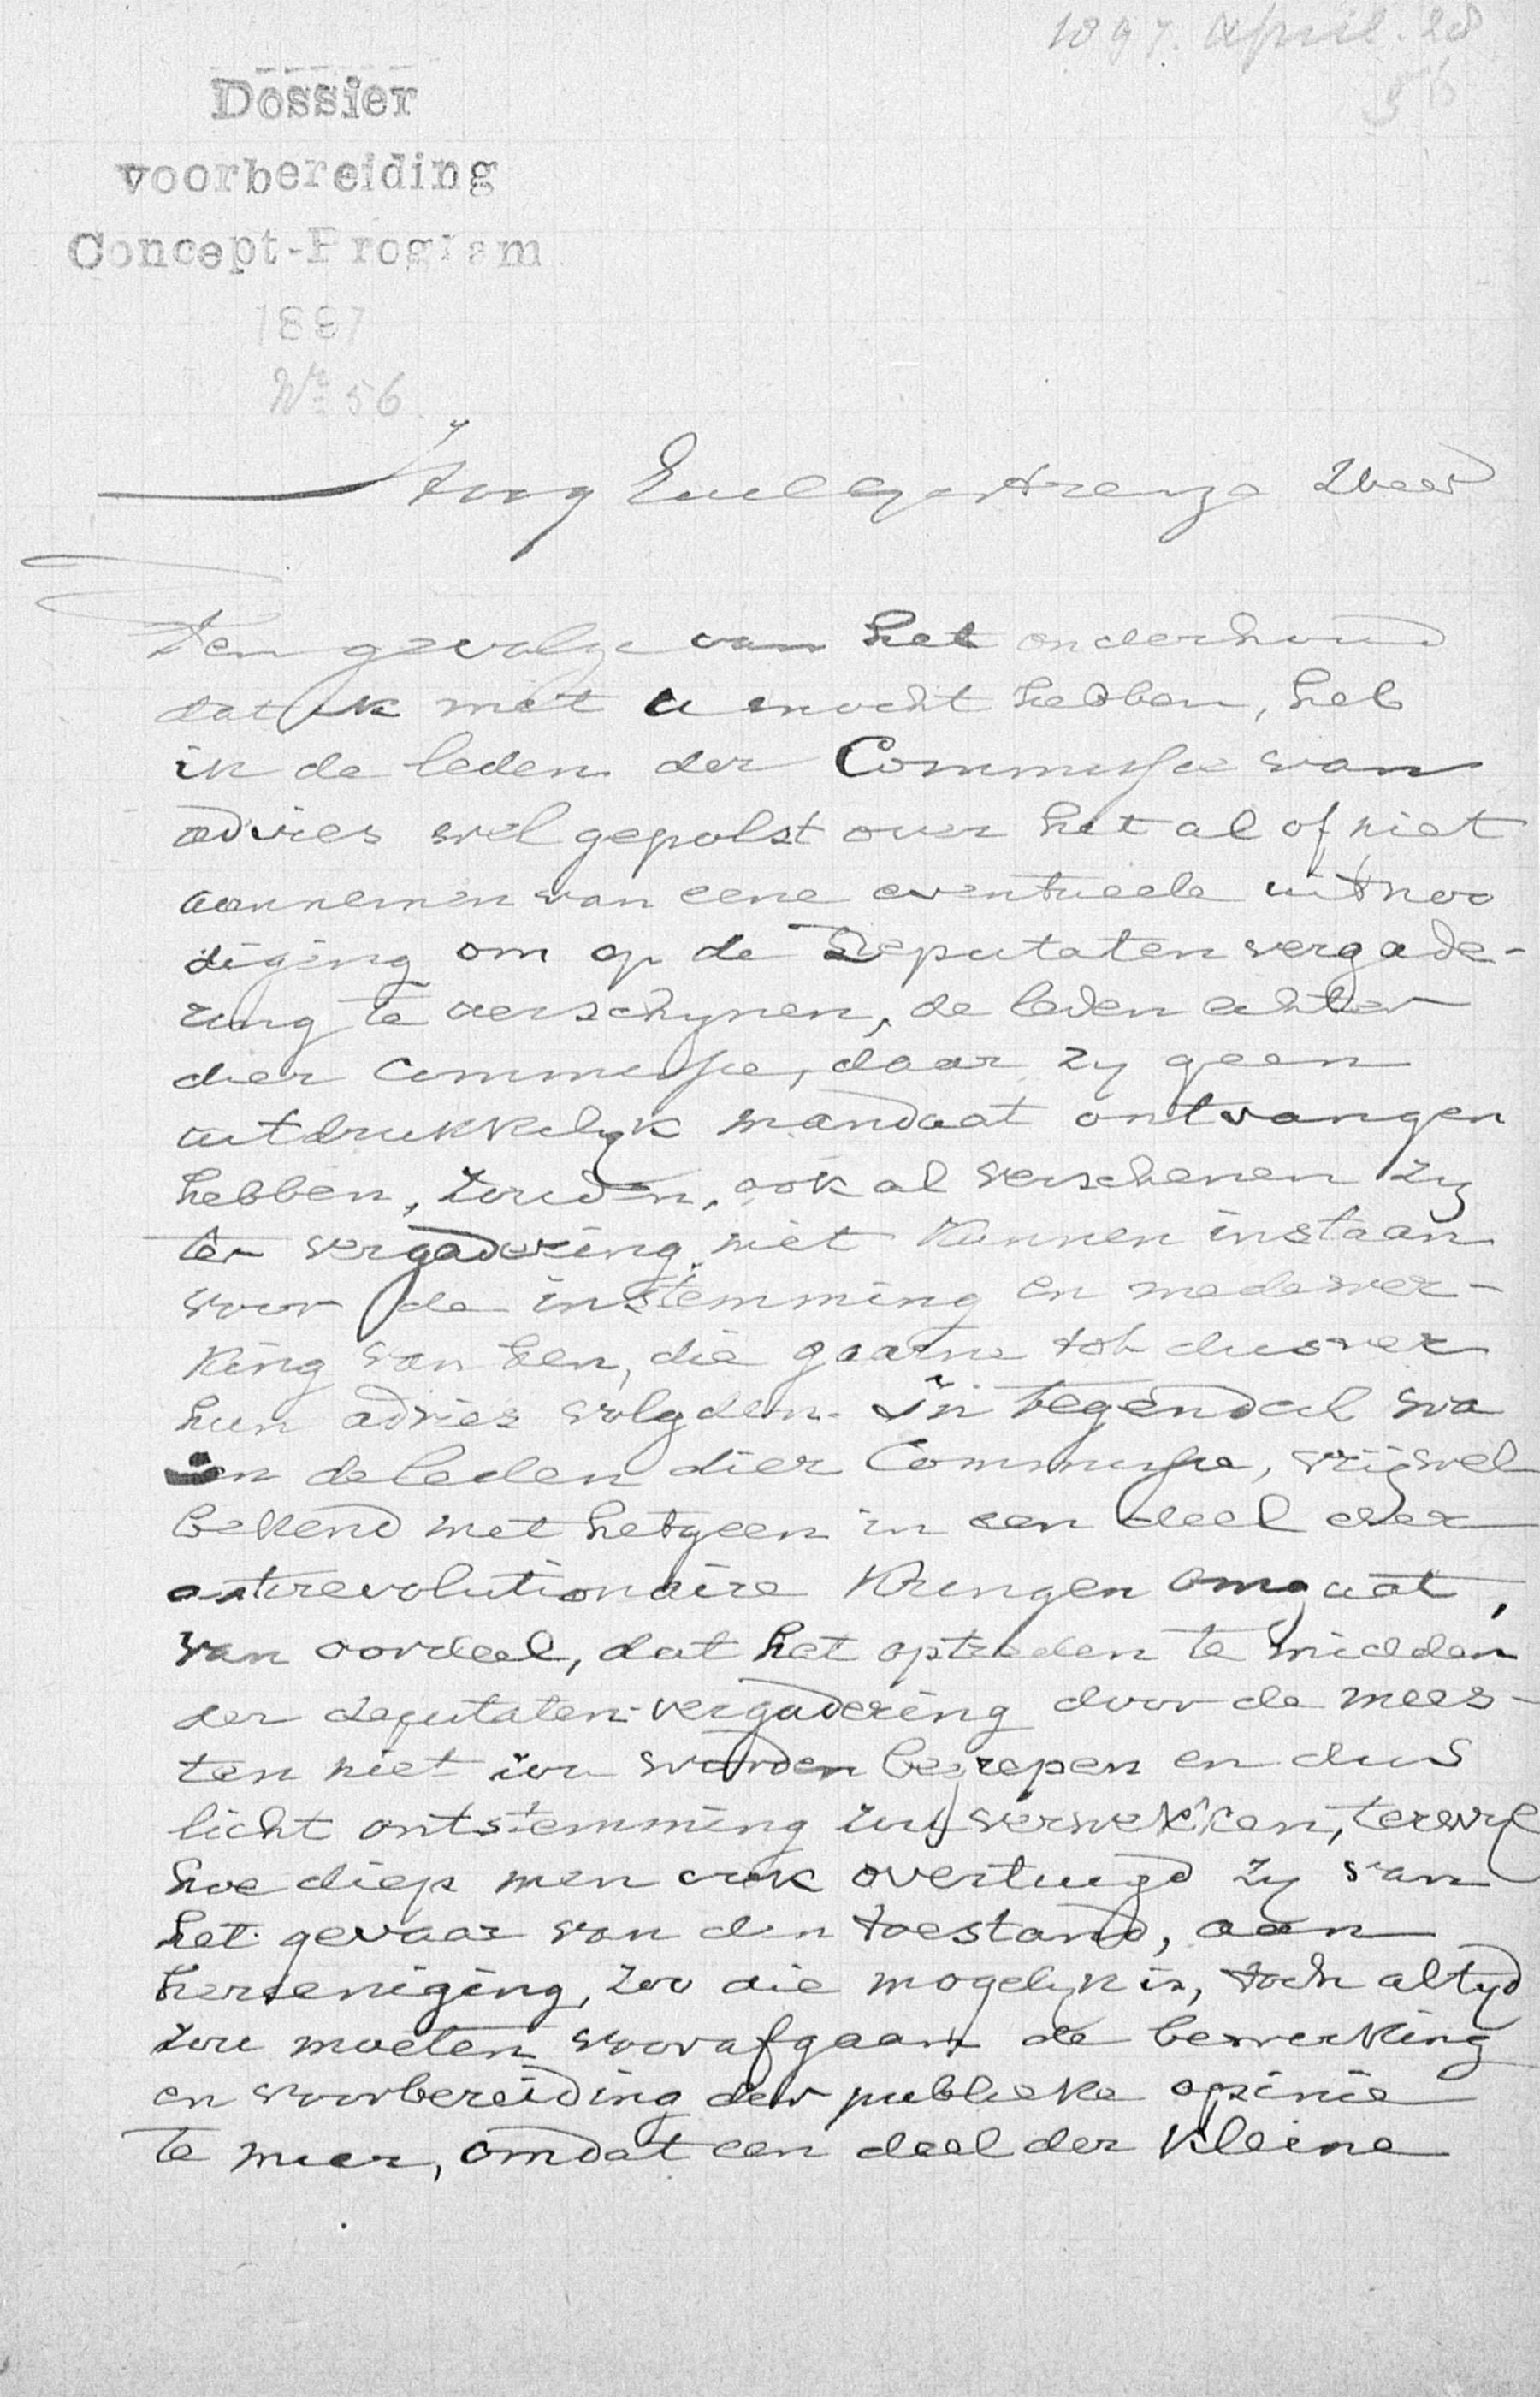 1897. April. 28
56
Dossier
voorbereiding
Concept-Program
1897
No 56.
Hoog Edelgestrenge Heer
Ten gevolge van het onderhoud
dat ik met u mocht hebben, heb
ik de leden der Commissie van
advies wel gepolst over het al of niet
aannemen van eene eventueele uitnoo
diging om op de Deputaten verga de-
ring te verschynen, de leden echter
dier Commissie, daar zy geen
uitdrukkelyk mandaat ontvangen
hebben, zouden, ook al verschenen zy
ter vergadering, niet kunnen instaan
voor de instemming en medewer-
king van hen, die gaarne tot dusver
hun advies volgden. In tegendeel wa
ren de leden dier Commissie, vrij wel
bekend met hetgeen in een deel der
antirevolutionaire Kringen omgaat,
van oordeel, dat het optreden te midden
der deputaten-vergadering door de mees-
ten niet zou worden begrepen en dus
licht ontstemming zou verwekken, terwyl
hoe diep men ook overtuigd zy van
het gevaar van den toestand, aan
hereeniging, zoo die mogelyk is, toch altyd
zou moeten voorafgaan de bewerking
en voorbereiding der publieke opinie
te meer, omdat een deel der kleine